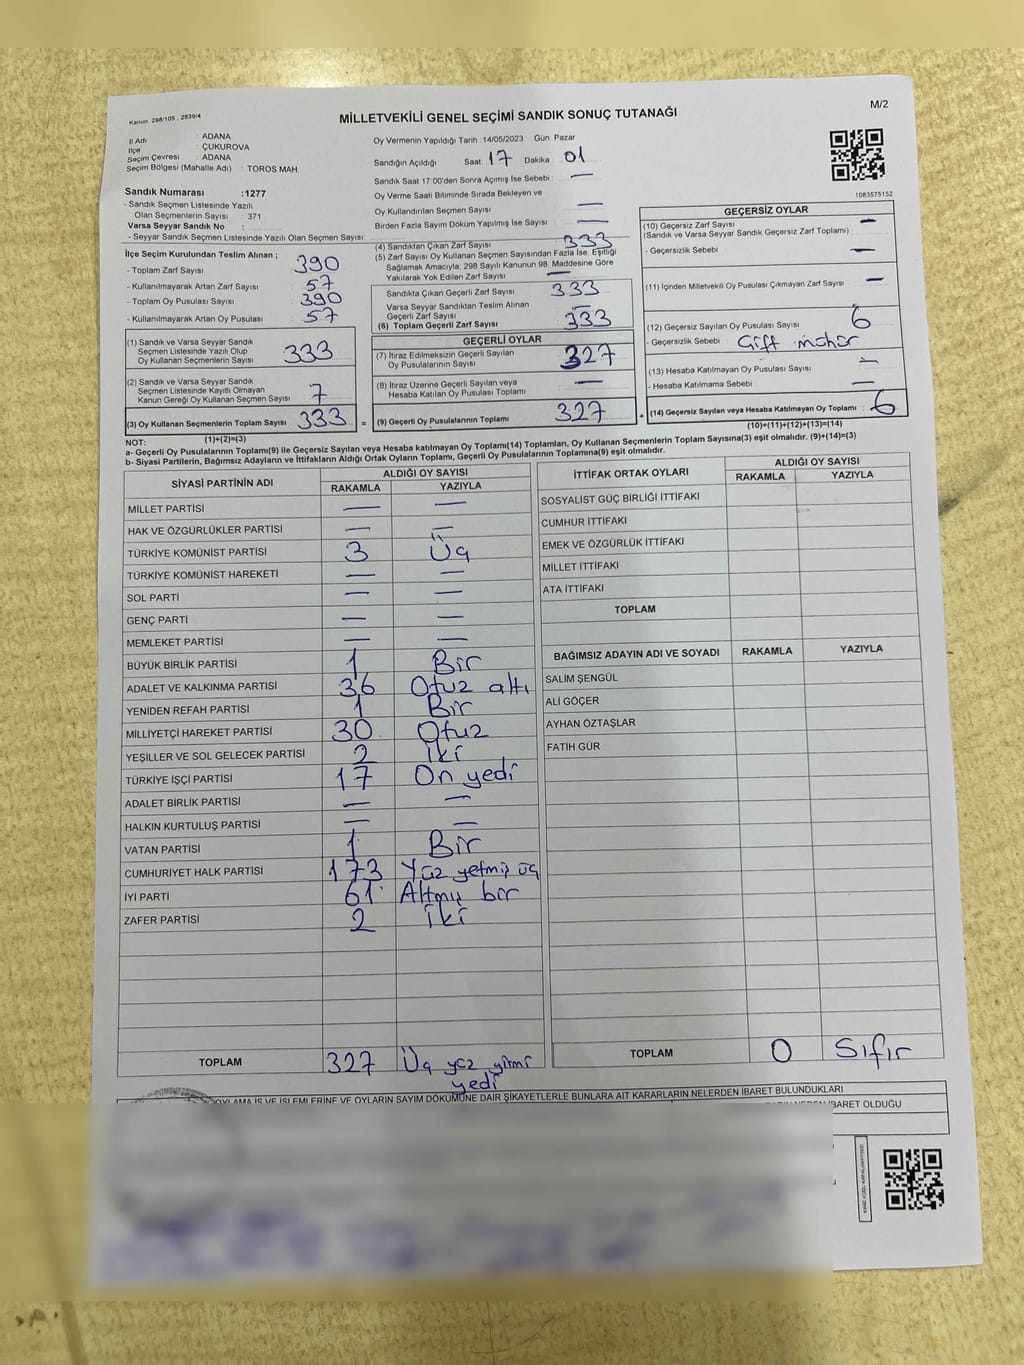 Kanun. 298/105 . 2839/4
MİLLETVEKİLİ GENEL SEÇİMİ SANDIK SONUÇ TUTANAĞI
M/2
İl Adı : ADANA
İlçe : ÇUKUROVA
Seçim Çevresi : ADANA
Seçim Bölgesi (Mahalle Adı) : TOROS MAH
Sandık Numarası :1277
- Sandık Seçmen Listesinde Yazılı
Olan Seçmenlerin Sayısı : 371
Varsa Seyyar Sandık No :
- Seyyar Sandık Seçmen Listesinde Yazılı Olan Seçmen Sayısı:
Oy Vermenin Yapıldığı Tarih :14/05/2023 Gün: Pazar
Sandığın Açıldığı Saat 17 Dakika 01
Sandık Saat 17:00'den Sonra Açımış İse Sebebi : —
Oy Verme Saati Bitiminde Sırada Bekleyen ve
Oy Kullandırılan Seçmen Sayısı —
Birden Fazla Sayım Döküm Yapılmış İse Sayısı —
1083575152
İlçe Seçim Kurulundan Teslim Alınan ;
- Toplam Zarf Sayısı 390
- Kullanılmayarak Artan Zarf Sayısı 57
- Toplam Oy Pusulası Sayısı 390
- Kullanılmayarak Artan Oy Pusulası 57
(1) Sandık ve Varsa Seyyar Sandık
Seçmen Listesinde Yazılı Olup
Oy Kullanan Seçmenlerin Sayısı 333
(2) Sandık ve Varsa Seyyar Sandık
Seçmen Listesinde Kayıtlı Olmayan
Kanun Gereği Oy Kullanan Seçmen Sayısı 7
(3) Oy Kullanan Seçmenlerin Toplam Sayısı 333 =
(1)+(2)=(3)
(4) Sandıktan Çıkan Zarf Sayısı 333
(5) Zarf Sayısı Oy Kullanan Seçmen Sayısından Fazla İse, Eşitliği
Sağlamak Amacıyla; 298 Sayılı Kanunun 98. Maddesine Göre
Yakılarak Yok Edilen Zarf Sayısı —
Sandıkta Çıkan Geçerli Zarf Sayısı 333
Varsa Seyyar Sandıktan Teslim Alınan
Geçerli Zarf Sayısı —
(6) Toplam Geçerli Zarf Sayısı 333
GEÇERLİ OYLAR
(7) İtiraz Edilmeksizin Geçerli Sayılan
Oy Pusulalarının Sayısı 327
(8) İtiraz Üzerine Geçerli Sayılan veya
Hesaba Katılan Oy Pusulası Toplamı —
(9) Geçerli Oy Pusulalarının Toplamı 327 +
GEÇERSİZ OYLAR
(10) Geçersiz Zarf Sayısı —
(Sandık ve Varsa Seyyar Sandık Geçersiz Zarf Toplamı)
- Geçersizlik Sebebi —
(11) İçinden Milletvekili Oy Pusulası Çıkmayan Zarf Sayısı —
(12) Geçersiz Sayılan Oy Pusulası Sayısı 6
- Geçersizlik Sebebi : Çift mühür
(13) Hesaba Katılmayan Oy Pusulası Sayısı —
- Hesaba Katılmama Sebebi —
(14) Geçersiz Sayılan veya Hesaba Katılmayan Oy Toplamı : 6
(10)+(11)+(12)+(13)=(14)
NOT:
a- Geçerli Oy Pusulalarının Toplamı(9) ile Geçersiz Sayılan veya Hesaba katılmayan Oy Toplamı(14) Toplamları, Oy Kullanan Seçmenlerin Toplam Sayısına(3) eşit olmalıdır. (9)+(14)=(3)
b- Siyasi Partilerin, Bağımsız Adayların ve İttifakların Aldığı Ortak Oyların Toplamı, Geçerli Oy Pusulalarının Toplamına(9) eşit olmalıdır.
SİYASİ PARTİNİN ADI ALDIĞI OY SAYISI
RAKAMLA YAZIYLA
MİLLET PARTİSİ — —
HAK VE ÖZGÜRLÜKLER PARTİSİ — —
TÜRKİYE KOMÜNİST PARTİSİ 3 Üç
TÜRKİYE KOMÜNİST HAREKETİ — —
SOL PARTİ — —
GENÇ PARTİ — —
MEMLEKET PARTİSİ — —
BÜYÜK BİRLİK PARTİSİ 1 Bir
ADALET VE KALKINMA PARTİSİ 36 Otuz altı
YENİDEN REFAH PARTİSİ 1 Bir
MİLLİYETÇİ HAREKET PARTİSİ 30 Otuz
YEŞİLLER VE SOL GELECEK PARTİSİ 2 İki
TÜRKİYE İŞÇİ PARTİSİ 17 On yedi
ADALET BİRLİK PARTİSİ — —
HALKIN KURTULUŞ PARTİSİ — —
VATAN PARTİSİ 1 Bir
CUMHURİYET HALK PARTİSİ 173 Yüz yetmiş üç
İYİ PARTİ 61 Altmış bir
ZAFER PARTİSİ 2 İki
TOPLAM 327 Üç yüz yirmi
yedi
İTTİFAK ORTAK OYLARI ALDIĞI OY SAYISI
RAKAMLA YAZIYLA
SOSYALİST GÜÇ BİRLİĞİ İTTİFAKI
CUMHUR İTTİFAKI
EMEK VE ÖZGÜRLÜK İTTİFAKI
MİLLET İTTİFAKI
ATA İTTİFAKI
TOPLAM
BAĞIMSIZ ADAYIN ADI VE SOYADI RAKAMLA YAZIYLA
SALİM ŞENGÜL
ALİ GÖÇER
AYHAN ÖZTAŞLAR
FATİH GÜR
TOPLAM 0 Sıfır
OYLAMA İŞ VE İŞLEMLERİNE VE OYLARIN SAYIM DÖKÜMÜNE DAİR ŞİKAYETLERLE BUNLARA AİT KARARLARIN NELERDEN İBARET BULUNDUKLARI
İBARET OLDUĞU